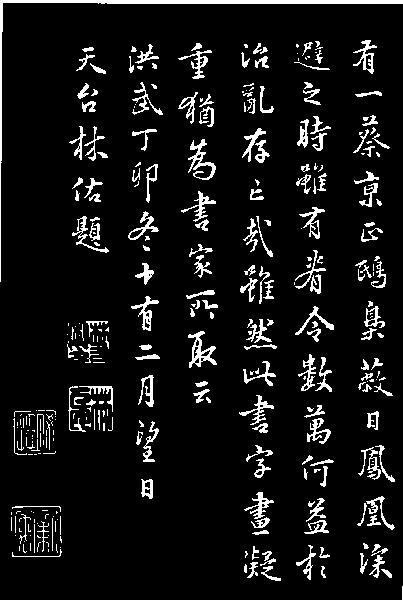 有一蔡京正鴟梟蔽日鳳凰深
避之時雖有脊令數萬何益於
治亂存亡哉雖然此書字畫凝
重猶為書家所取云
洪武丁卯冬十有二月望日
天台林佑題